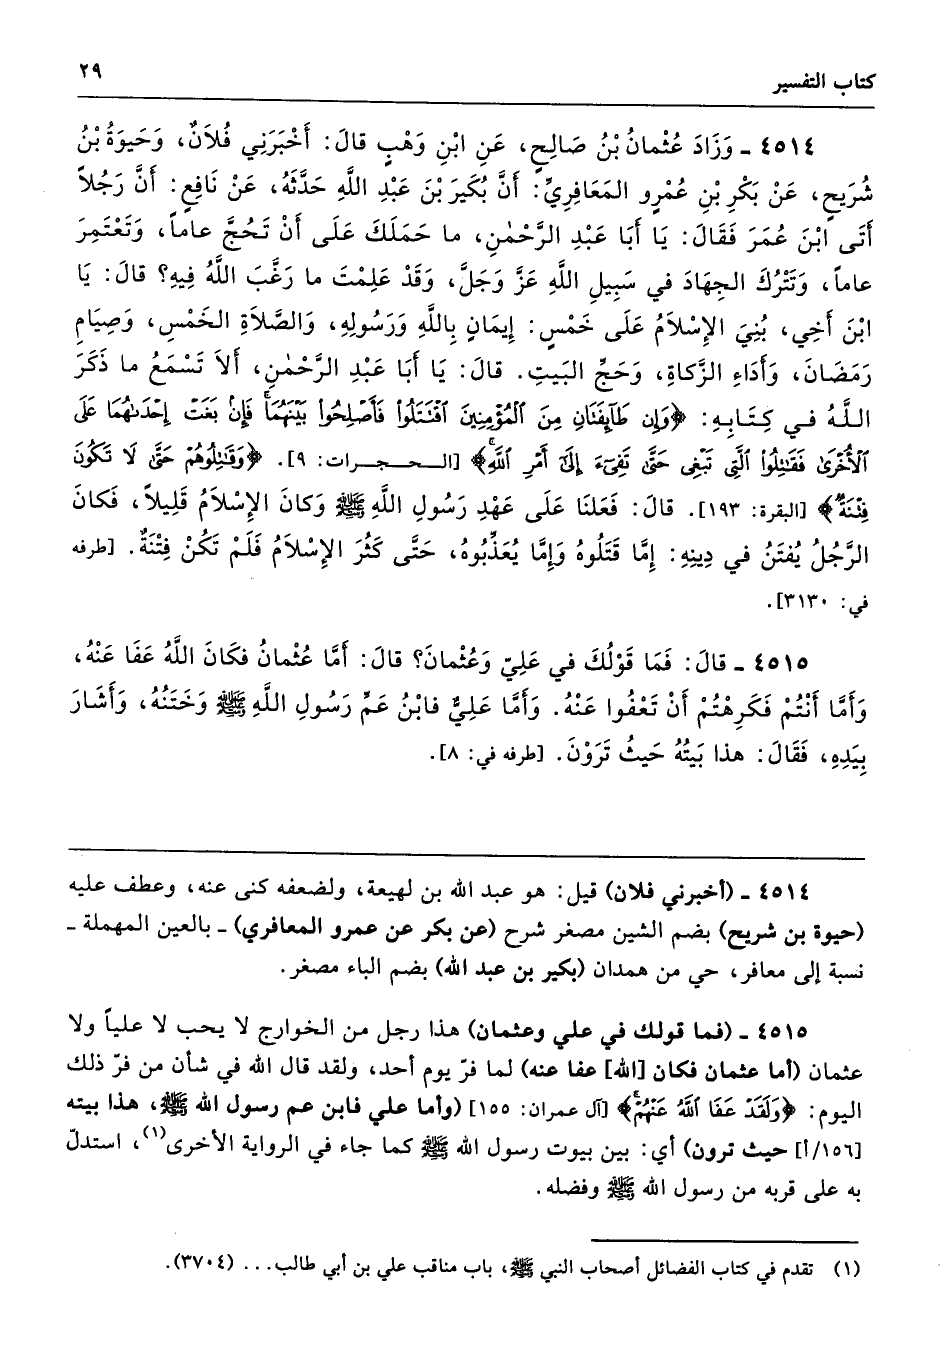 كتاب التفسير
٢٩
٤٥١٤ ـ وَزَادَ عُثْمانُ بْنُ صَالِحٍ، عَنِ ابْنِ وَهْبٍ قالَ: أَخْبَرَنِي فُلَانٌ، وَحَيوَةُ بْنُ
شُرَيحٍ، عَنْ بَكْرِ بْنِ عُمْرٍو المَعَافِرِيِّ: أَنَّ بُكَيرَ بْنَ عَبْدِ اللَّهِ حَدَّثَهُ، عَنْ نَافِعٍ: أَنَّ رَجُلاً
أَتَى ابْنَ عُمَرَ فَقَالَ: يَا أَبَا عَبْدِ الرَّحْمٰنِ، ما حَمَلَكَ عَلَى أَنْ تَحُجَّ عاماً، وَتَعْتَمِرَ
عاماً، وَتَتْرُكَ الجِهَادَ في سَبِيلِ اللَّهِ عَزَّ وَجَلَّ، وَقَدْ عَلِمْتَ ما رَغَّبَ اللَّهُ فِيهِ؟ قالَ: يَا
ابْنَ أَخِي، بُنِيَ الإِسْلَامُ عَلَى خَمْسٍ: إِيمَانٍ بِاللَّهِ وَرَسُولِهِ، وَالصَّلَاةِ الخَمْسِ، وَصِيَامِ
رَمَضَانَ، وَأَدَاءِ الزَّكاةِ، وَحَجِّ البَيتِ. قالَ: يَا أَبَا عَبْدِ الرَّحْمٰنِ، أَلاَ تَسْمَعُ ما ذَكَرَ
اللَّهُ في كِتَابِهِ: ﴿وَإِن طَآئِفَتَانِ مِنَ ٱلْمُؤْمِنِينَ ٱقْتَتَلُوا۟ فَأَصْلِحُوا۟ بَيْنَهُمَا ۖ فَإِنۢ بَغَتْ إِحْدَىٰهُمَا عَلَى
ٱلْأُخْرَىٰ فَقَٰتِلُوا۟ ٱلَّتِى تَبْغِى حَتَّىٰ تَفِىٓءَ إِلَىٰٓ أَمْرِ ٱللَّهِ ۚ﴾ [الـحـجـرات: ٩]. ﴿وَقَٰتِلُوهُمْ حَتَّىٰ لَا تَكُونَ
فِتْنَةٌ﴾ [البقرة: ١٩٣]. قالَ: فَعَلنَا عَلَى عَهْدِ رَسُولِ اللَّهِ ﷺ وَكانَ الإِسْلَامُ قَلِيلاً، فَكانَ
الرَّجُلُ يُفتَنُ في دِينِهِ: إِمَّا قَتَلُوهُ وَإِمَّا يُعَذِّبُوهُ، حَتَّى كَثُرَ الإِسْلَامُ فَلَمْ تَكُنْ فِتْنَةٌ. [طرفه
في: ٣١٣٠].
٤٥١٥ ـ قالَ: فَمَا قَوْلُكَ في عَلِيّ وَعُثْمانَ؟ قالَ: أَمَّا عُثْمانُ فَكانَ اللَّهُ عَفَا عَنْهُ،
وَأَمَّا أَنْتُمْ فَكَرِهْتُمْ أَنْ تَعْفُوا عَنْهُ. وَأَمَّا عَلِيٌّ فابْنُ عَمِّ رَسُولِ اللَّهِ ﷺ وَخَتَنُهُ، وَأَشَارَ
بِيَدِهِ، فَقَالَ: هذا بَيتُهُ حَيثُ تَرَوْنَ. [طرفه في: ٨].
٤٥١٤ ـ (أخبرني فلان) قيل: هو عبد الله بن لهيعة، ولضعفه كنى عنه، وعطف عليه
(حيوة بن شريح) بضم الشين مصغر شرح (عن بكر عن عمرو المعافري) ـ بالعين المهملة ـ
نسبة إلى معافر، حي من همدان (بكير بن عبد الله) بضم الباء مصغر.
٤٥١٥ ـ (فما قولك في علي وعثمان) هذا رجل من الخوارج لا يحب لا علياً ولا
عثمان (أما عثمان فكان [الله] عفا عنه) لما فرّ يوم أحد، ولقد قال الله في شأن من فرّ ذلك
اليوم: ﴿وَلَقَدْ عَفَا ٱللَّهُ عَنْهُمْ ۚ﴾ [آل عمران: ١٥٥] (وأما علي فابن عم رسول الله ﷺ، هذا بيته
[١٥٦/أ] حيث ترون) أي: بين بيوت رسول الله ﷺ كما جاء في الرواية الأخرى(١)، استدلّ
به على قربه من رسول الله ﷺ وفضله.
(١) تقدم في كتاب الفضائل أصحاب النبي ﷺ، باب مناقب علي بن أبي طالب... (٣٧٠٤).